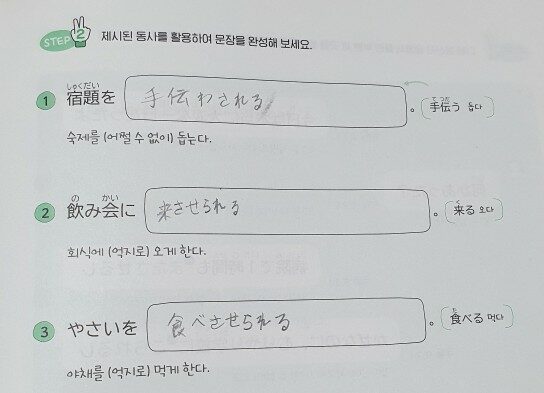 STEP 2 제시된 동사를 활용하여 문장을 완성해 보세요.
しゅくだい
1 宿題を 手伝わされる 。 (手伝う 돕다)
てつだ
숙제를 (어쩔 수 없이) 돕는다.
の かい
2 飲み会に 来させられる 。 (来る 오다)
く
회식에 (억지로) 오게 한다.
3 やさいを 食べさせられる 。 (食べる 먹다)
た
야채를 (억지로) 먹게 한다.